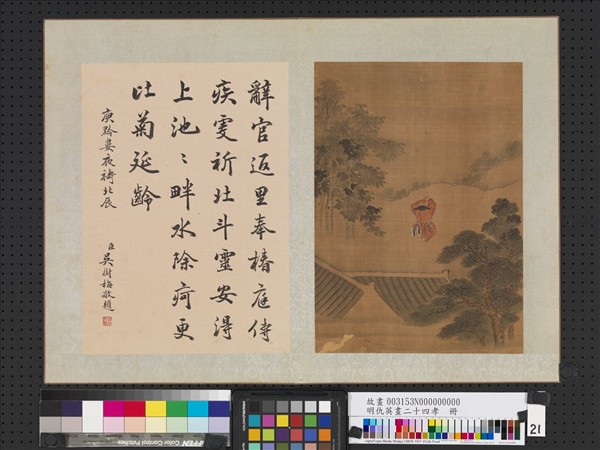 辭官返里奉椿庭侍
疾虔祈北斗靈安得
上池〻畔水除痾更
比菊延齡
庾黔婁夜禱北辰
臣吳樹梅敬題
故畫 003153N000000000
明仇英畫二十四孝 冊
21
Color Control Patches